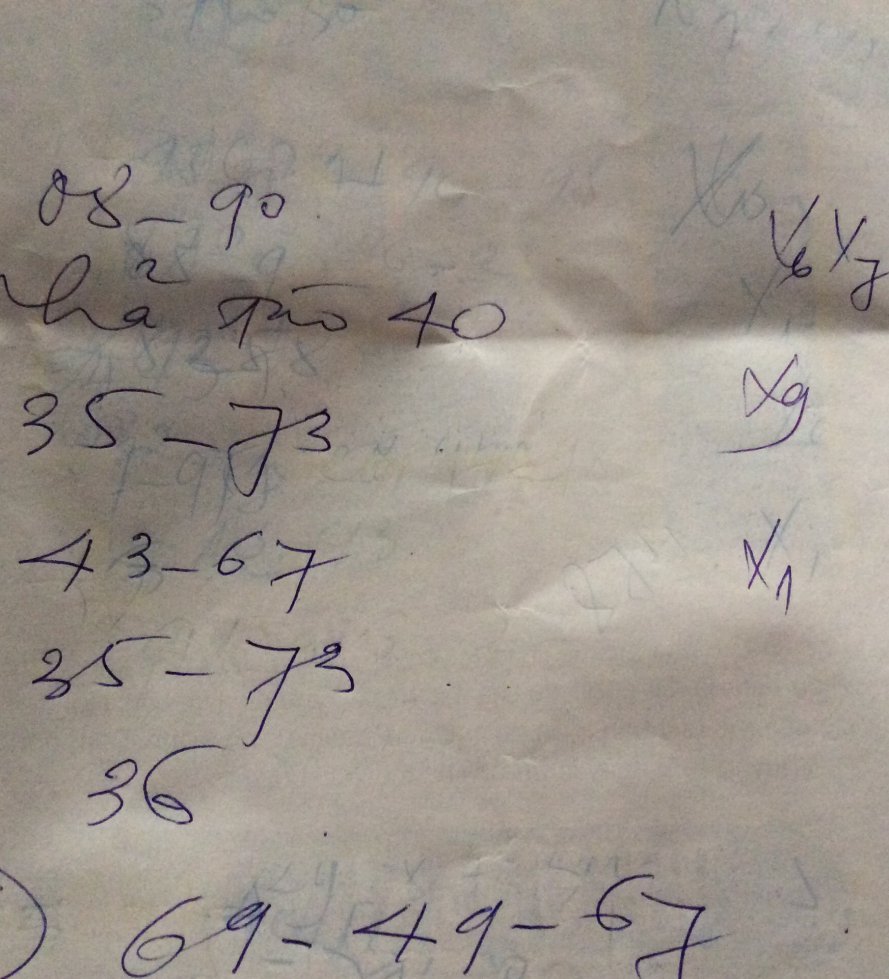 08 - 90 X6 X7
nhả 40
35 - 73 X9
43 - 67 X1
35 - 73
36
) 69 - 49 - 67